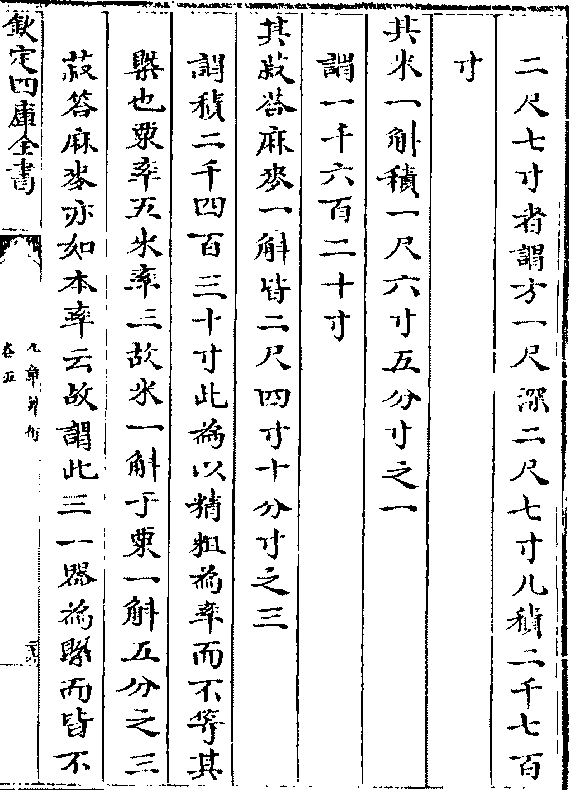 二尺七寸者謂方一尺深二尺七寸凡積二千七百
寸
其米一斛積一尺六寸五分寸之一
謂一千六百二十寸
其菽荅麻麥一斛皆二尺四寸十分寸之三
謂積二千四百三十寸此為以精粗為率而不等其
槩也粟率五米率三故米一斛于粟一斛五分之三
菽荅麻麥亦如本率云故謂此三一器為槩而皆不
欽定四庫全書
九章算術
卷五